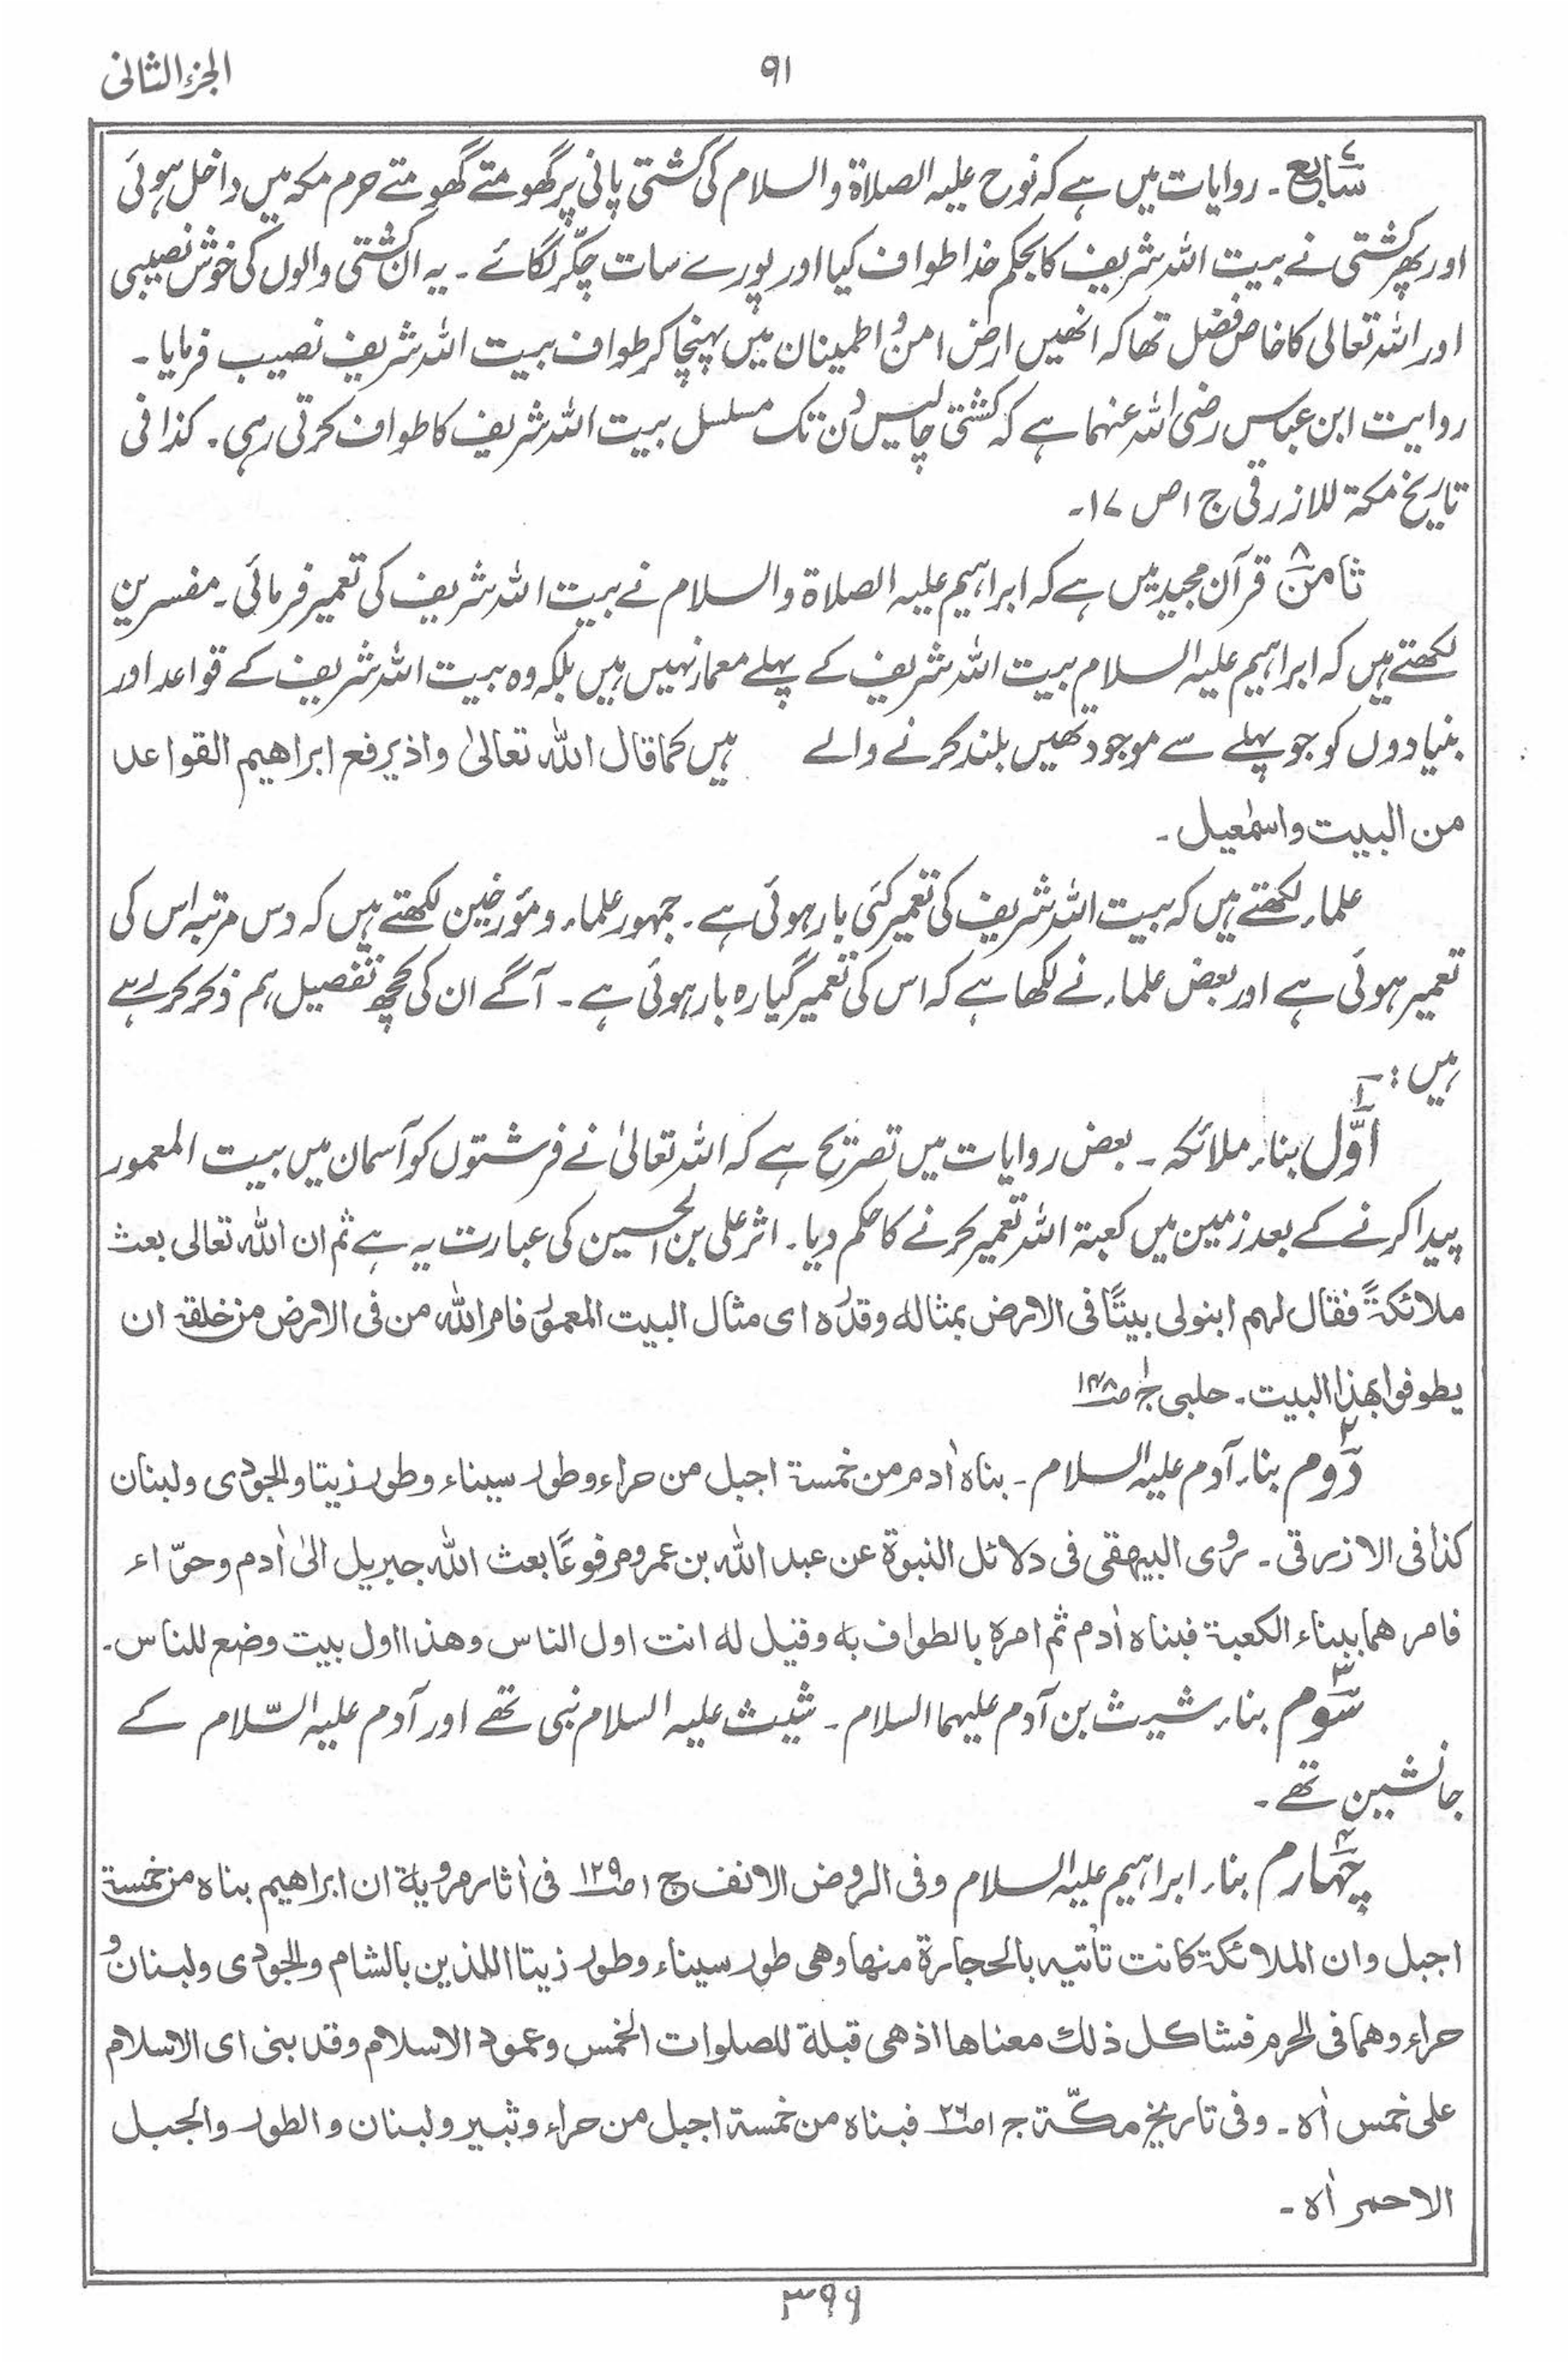 الجزء الثانی
۹۱
سابع۷ ۔ روایات میں ہے کہ نوح علیہ الصلاۃ والسلام کی کشتی پانی پر گھومتے گھومتے حرم مکہ میں داخل ہوئی
اور پھر کشتی نے بیت اللہ شریف کا بحکم خدا طواف کیا اور پورے سات چکّر لگائے ۔ یہ ان کشتی والوں کی خوش نصیبی
اور اللہ تعالی کا خاص فضل تھا کہ انھیں ارض امن و اطمینان میں پہنچا کر طواف بیت اللہ شریف نصیب فرمایا ۔
روایت ابن عباس رضی اللہ عنہما ہے کہ کشتی چالیس دن تک مسلسل بیت اللہ شریف کا طواف کرتی رہی ۔ کذا فی
تاریخ مکۃ للازرقی ج ۱ ص ۱۷ ۔
ثامن۸ قرآن مجید میں ہے کہ ابراہیم علیہ الصلاۃ والسلام نے بیت اللہ شریف کی تعمیر فرمائی ۔ مفسرین
لکھتے ہیں کہ ابراہیم علیہ السلام بیت اللہ شریف کے پہلے معمار نہیں ہیں بلکہ وہ بیت اللہ شریف کے قواعد اور
بنیادوں کو جو پہلے سے موجود تھیں بلند کرنے والے ہیں کما قال اللہ تعالیٰ واذ یرفع ابراھیم القواعد
من البیت واسمٰعیل ۔
علماء لکھتے ہیں کہ بیت اللہ شریف کی تعمیر کئی بار ہوئی ہے ۔ جمہور علماء و مؤرخین لکھتے ہیں کہ دس مرتبہ اس کی
تعمیر ہوئی ہے اور بعض علماء نے لکھا ہے کہ اس کی تعمیر گیارہ بار ہوئی ہے ۔ آگے ان کی کچھ تفصیل ہم ذکر کر رہے
ہیں :۔
اوّل۱ بناء ملائکہ ۔ بعض روایات میں تصریح ہے کہ اللہ تعالیٰ نے فرشتوں کو آسمان میں بیت المعمور
پیدا کرنے کے بعد زمین میں کعبۃ اللہ تعمیر کرنے کا حکم دیا ۔ اثر علی بن الحسین کی عبارت یہ ہے ثم ان اللہ تعالی بعث
ملائکۃً فقال لہم ابنولی بیتًا فی الارض بمثالہ وقدرہ ای مثال البیت المعمور فامر اللہ من فی الارض من خلقہ ان
یطوفوا بھذا البیت ۔ حلبی ج۱ ص۱۴۸
دوم۲ بناء آدم علیہ السلام ۔ بناہ اٰدم من خمسۃ اجبل من حراء وطور سیناء وطور زیتا والجودی ولبنان
کذا فی الازرقی ۔ روی البیھقی فی دلائل النبوۃ عن عبد اللہ بن عمرو مرفوعًا بعث اللہ جبریل الیٰ اٰدم وحوّاء
فامرھما ببناء الکعبۃ فبناہ اٰدم ثم امرہ بالطواف بہ وقیل لہ انت اول الناس وھذا اول بیت وضع للناس ۔
سوم۳ بناء شیث بن آدم علیہما السلام ۔ شیث علیہ السلام نبی تھے اور آدم علیہ السّلام کے
جانشین تھے ۔
چہارم۴ بناء ابراہیم علیہ السلام وفی الروض الانف ج ۱ ص۱۲۹ فی اٰثار مرویۃ ان ابراھیم بناہ من خمسۃ
اجبل وان الملائکۃ کانت تأتیہ بالحجارۃ منھا وھی طور سیناء وطور زیتا اللذین بالشام والجودی ولبنان و
حراء وھما فی الحرم فشاکل ذلک معناھا اذ ھی قبلۃ للصلوات الخمس وعمود الاسلام وقد بنی ای الاسلام
علی خمس اٰہ ۔ وفی تاریخ مکّۃ ج ۱ ص۲۶ فبناہ من خمسۃ اجبل من حراء وثبیر ولبنان والطور والجبل
الاحمر اٰہ ۔
۳۹۹